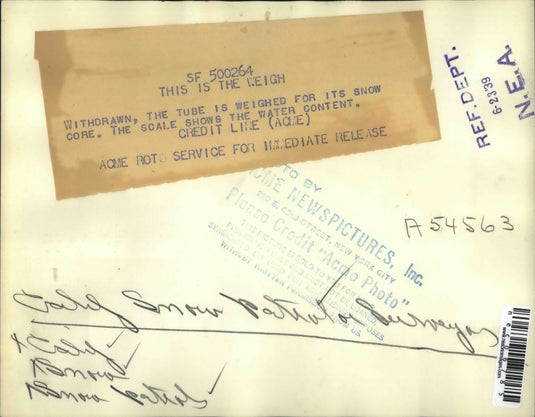 SF 500264
THIS IS THE WEIGH
WITHDRAWN, THE TUBE IS WEIGHED FOR ITS SNOW
CORE. THE SCALE SHOWS THE WATER CONTENT.
CREDIT LINE (ACME)
ACME ROTO SERVICE FOR IMMEDIATE RELEASE
REF. DEPT.
6-23-39
N.E.A.
BY
ACME NEWSPICTURES, Inc.
STREET, NEW YORK CITY
Please Credit "Acme Photo"
THIS PICTURE IS SOLD TO YOU FOR YOUR
A54563
Calif Snow Patrols Surveyas
Calif
Snow
Snow Patrols